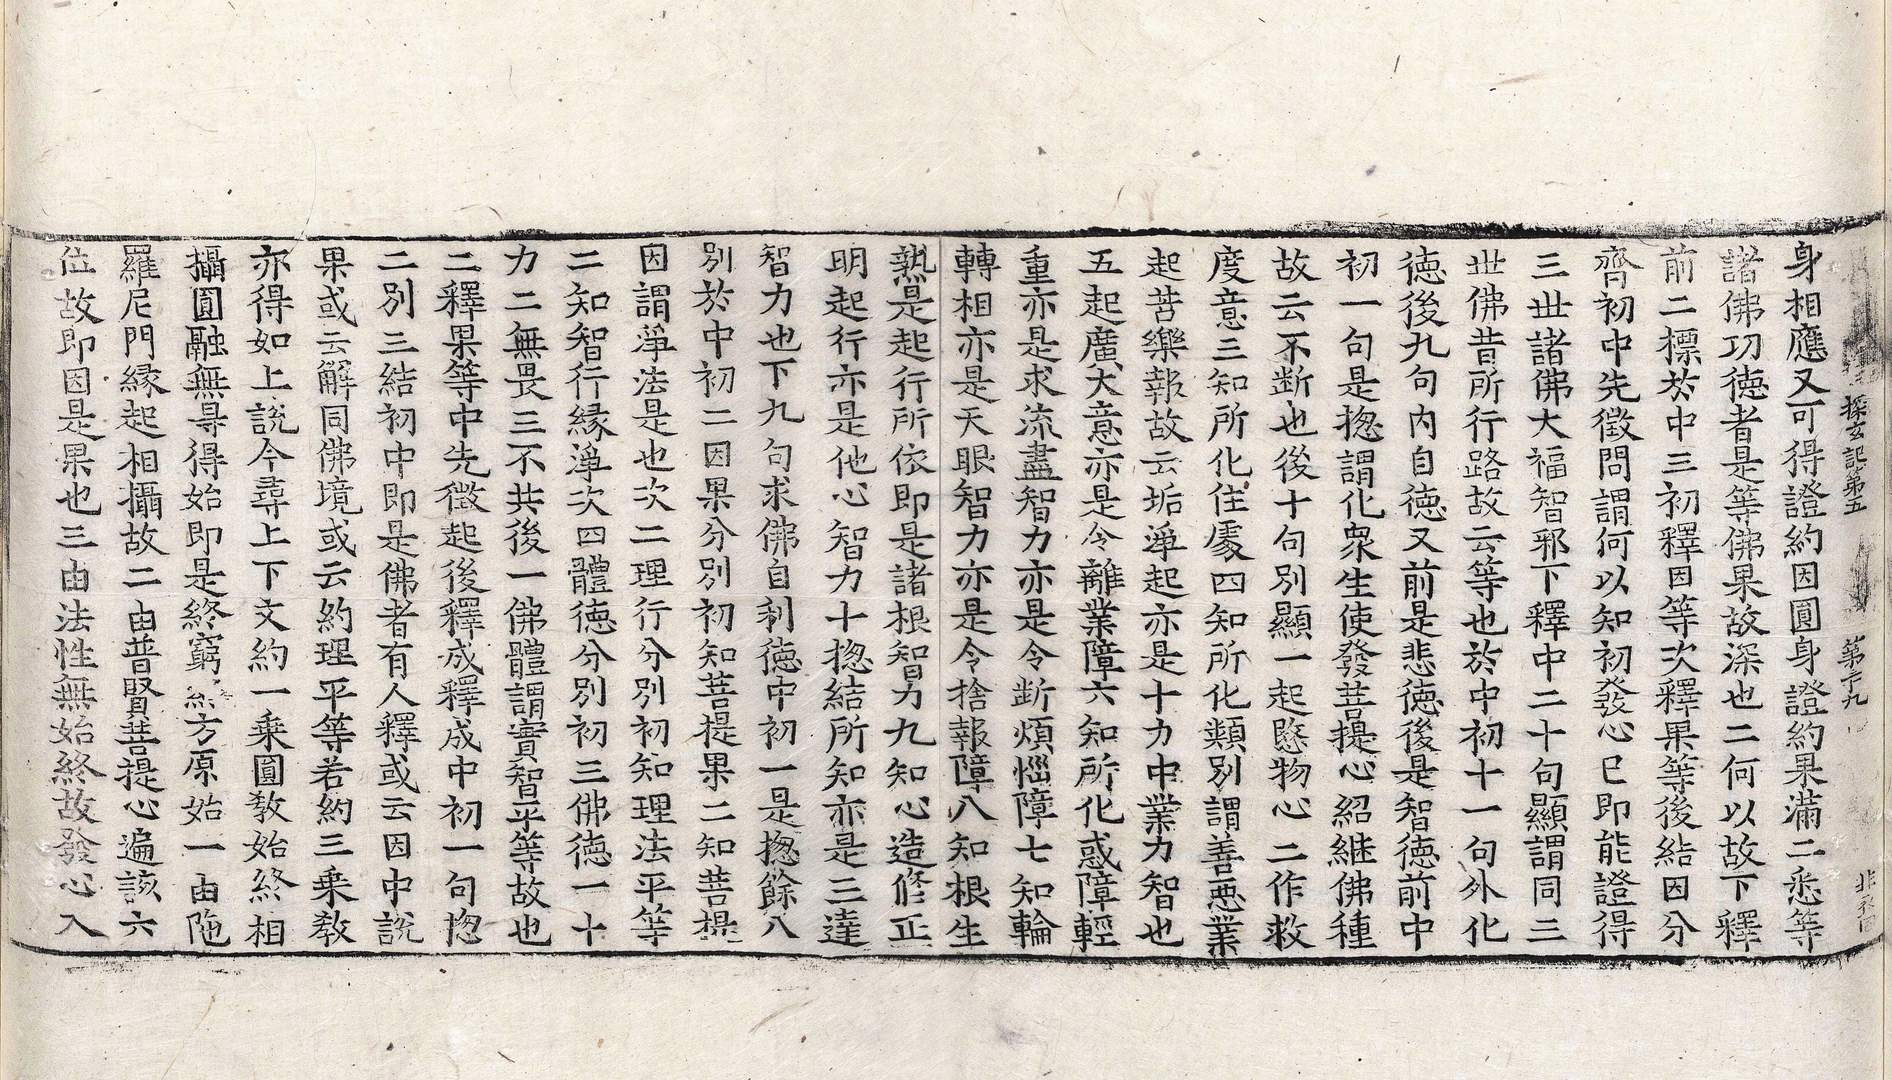 探玄記第五 第二十九
身相應又可得證約因圓身證約果滿二悉等
諸佛功徳者是等佛果故深也二何以故下釋
前二標於中三初釋因等次釋果等後結因分
齊初中先徵問謂何以知初發心已即能證得
三世諸佛大福智邪下釋中二十句顯謂同三
世佛昔所行路故云等也於中初十一句外化
徳後九句内自徳又前是悲徳後是智徳前中
初一句是揔謂化衆生使發菩提心紹継佛種
故云不断也後十句別顯一起愍物心二作救
度意三知所化住處四知所化類別謂善惡業
起苦樂報故云垢淨起亦是十力中業力智也
五起廣大意亦是令離業障六知所化惑障輕
重亦是求流盡智力亦是令断煩惱障七知輪
轉相亦是天眼智力亦是令捨報障八知根生
熟是起行所依即是諸根智力九知心造修正
明起行亦是他心智力十揔結所知亦是三達
智力也下九句求佛自利徳中初一是揔餘八
別於中初二因果分別初知菩提果二知菩提
因謂淨法是也次二理行分別初知理法平等
二知智行縁淨次四體徳分別初三佛徳一十
力二無畏三不共後一佛體謂實智平等故也
二釋果等中先徴起後釋成釋成中初一句揔
二別三結初中即是佛者有人釋或云因中説
果或云解同佛境或云約理平等若約三乗教
亦得如上説今尋上下文約一乗圓教始終相
攝圓融無㝵得始即是終窮方原始一由陁
羅尼門縁起相攝故二由普賢菩提心遍該六
位故即因是果也三由法性無始終故發心入